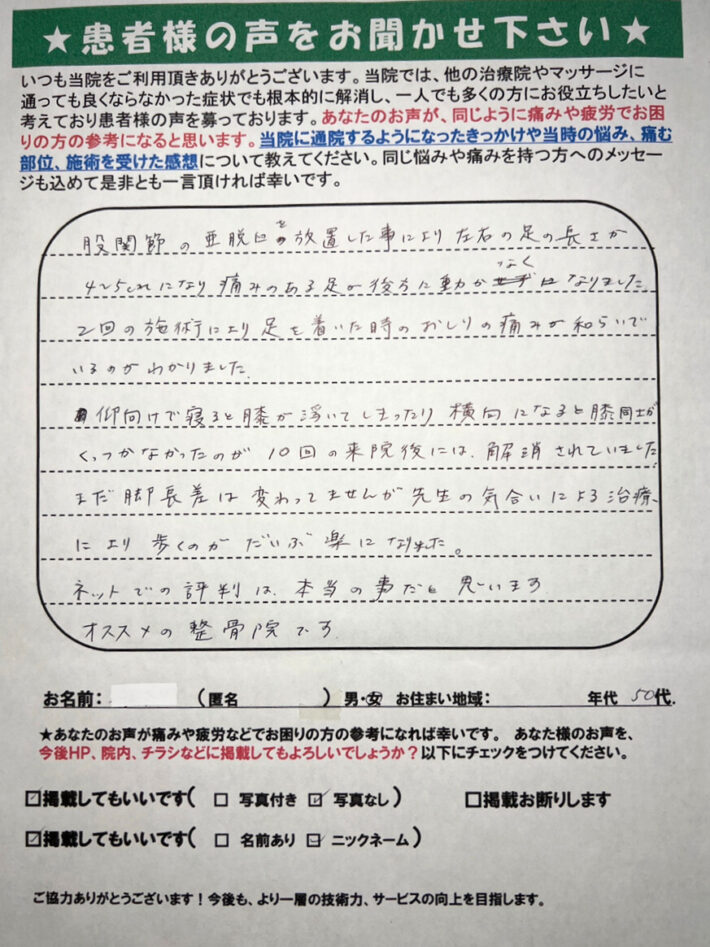 ★患者様の声をお聞かせ下さい★
いつも当院をご利用頂きありがとうございます。当院では、他の治療院やマッサージに
通っても良くならなかった症状でも根本的に解消し、一人でも多くの方にお役立ちしたいと
考えており患者様の声を募っております。あなたのお声が、同じように痛みや疲労でお困
りの方の参考になると思います。当院に通院するようになったきっかけや当時の悩み、痛む
部位、施術を受けた感想について教えてください。同じ悩みや痛みを持つ方へのメッセー
ジも込めて是非とも一言頂ければ幸いです。
股関節の亜脱臼を放置した事により左右の足の長さが
4~5cmになり痛みのある足が後方に動かなくなりました
2回の施術により足を着いた時のおしりの痛みが和らいで
いるのがわかりました
仰向けで寝ると膝が浮いてしまったり横向になると膝同士が
くっつかなかったのが10回の来院後には、解消されていました
まだ脚長差は変わってませんが先生の気合いによる治療、
により歩くのがだいぶ楽になりました。
ネットでの評判は、本当の事だと思います
オススメの整骨院です
お名前: (匿名 ) 男・女 お住まい地域: 年代 50代.
★あなたのお声が痛みや疲労などでお困りの方の参考になれば幸いです。 あなた様のお声を、
今後HP、院内、チラシなどに掲載してもよろしいでしょうか?以下にチェックをつけてください。
☑掲載してもいいです( □ 写真付き ☑ 写真なし ) □掲載お断りします
☑掲載してもいいです( □ 名前あり ☑ ニックネーム )
ご協力ありがとうございます!今後も、より一層の技術力、サービスの向上を目指します。